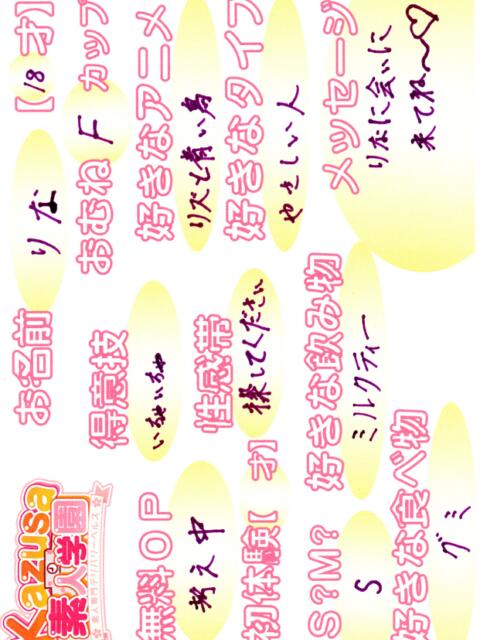 Kazusa
素人学園
素人専門デリバリーヘルス
お名前 りな 【18才】
得意技 いちゃいちゃ
おむね F カップ
無料OP 考え中
性感帯 探してください
好きなアニメ リズと青い鳥
初体験【 才】
好きなタイプ やさしい人
S?M? S
好きな飲み物 ミルクティー
メッセージ
りなに会いに
来てね〜♡
好きな食べ物 グミ